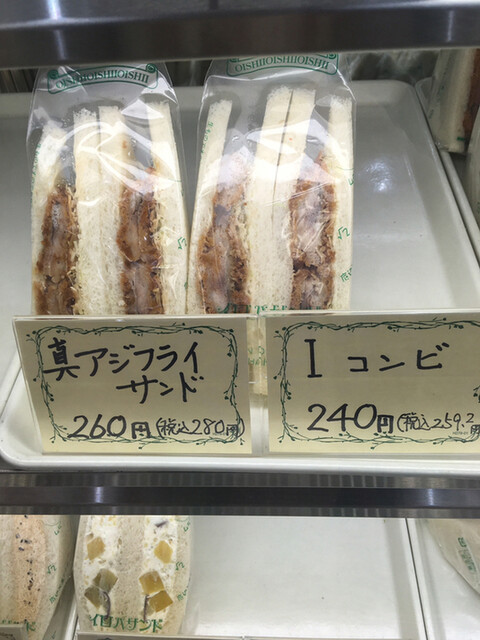 OISHIIOISHIIOISHII
OISHIIOISHIIOISHII
真アジフライ
サンド
260円(税込280円)
I コンビ
240円(税込259.2円)
イロハサンド